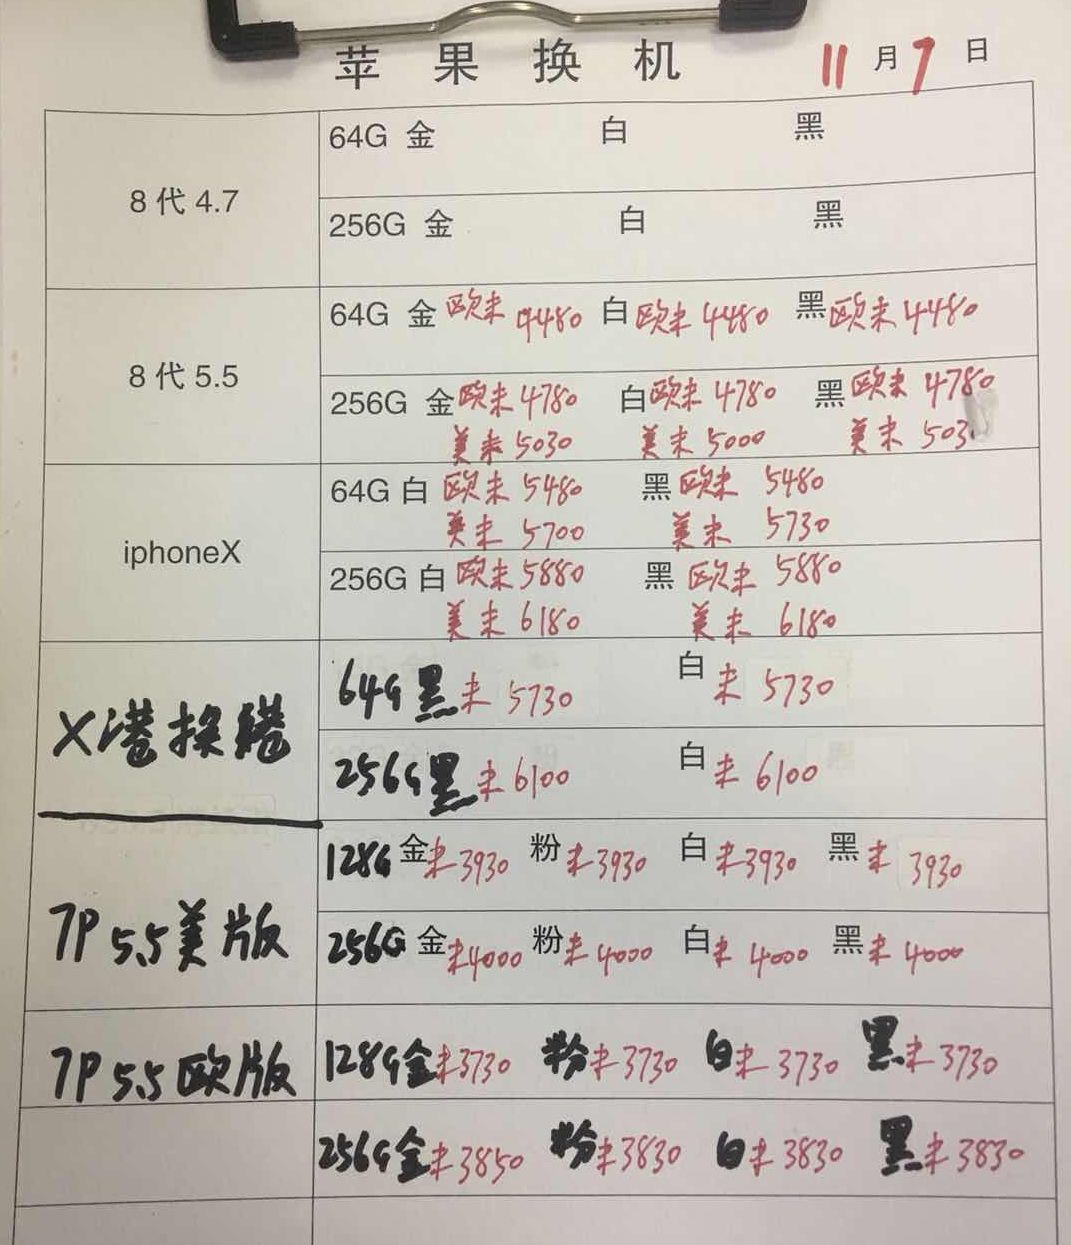 苹果换机 11月7日
8代4.7
64G 金 白 黑
256G 金 白 黑
8代5.5
64G 金 欧未 4480 白 欧未 4480 黑 欧未 4480
256G 金 欧未 4780 白 欧未 4780 黑 欧未 4780
美未 5030 美未 5000 美未 503
iphoneX
64G 白 欧未 5480 黑 欧未 5480
美未 5700 美未 5730
256G 白 欧未 5880 黑 欧未 5880
美未 6180 美未 6180
X港换港
64G 黑 未 5730 白 未 5730
256G 黑 未 6100 白 未 6100
7P 5.5美版
128G 金 未 3930 粉 未 3930 白 未 3930 黑 未 3930
256G 金 未 4000 粉 未 4000 白 未 4000 黑 未 4000
7P 5.5欧版
128G 金 未 3730 粉 未 3730 白 未 3730 黑 未 3730
256G 金 未 3850 粉 未 3830 白 未 3830 黑 未 3830